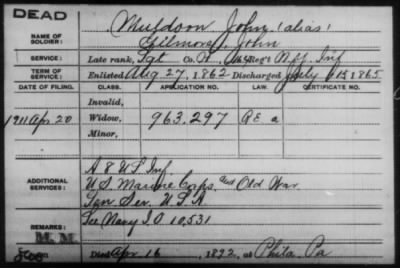 DEAD
NAME OF SOLDIER:
Muldoon John (alias)
Gillmore, John
SERVICE:
Late rank, Sgt Co. Reg't Inf
TERM OF SERVICE:
Enlisted Aug 27, 1862 Discharged July 1865
DATE OF FILING. CLASS. APPLICATION NO. LAW. CERTIFICATE NO.
Invalid,
1911 Apr. 20 Widow, 963.297
Minor,
ADDITIONAL SERVICES:
A 8 U S Inf.
U.S. Marine Corps. Old War
Gen Ser. U.S.A
REMARKS:
See Navy I.O 10,531
M.M.
Died Apr 16, 1892, at Phila. Pa